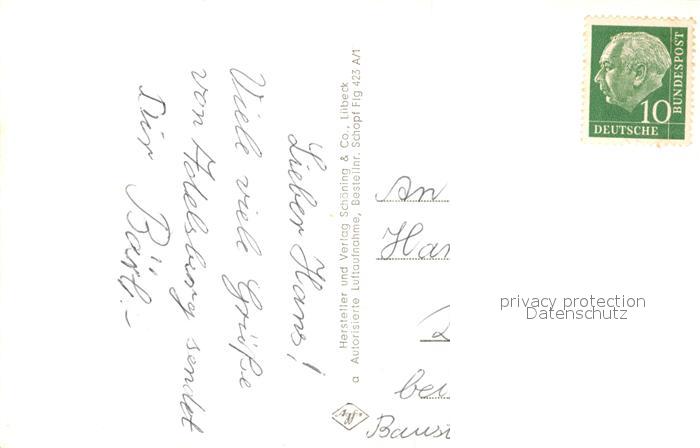 Lieber Hans!
Viele viele Grüße
von Adelsburg sendet
Dir Bärb.-
Hersteller und Verlag Schöning & Co., Lübeck
a Autorisierte Luftaufnahme, Bestellnr. Schopf Flg 423 A/1
10
DEUTSCHE
BUNDESPOST
An
Han
bei
Baus
privacy protection
Datenschutz